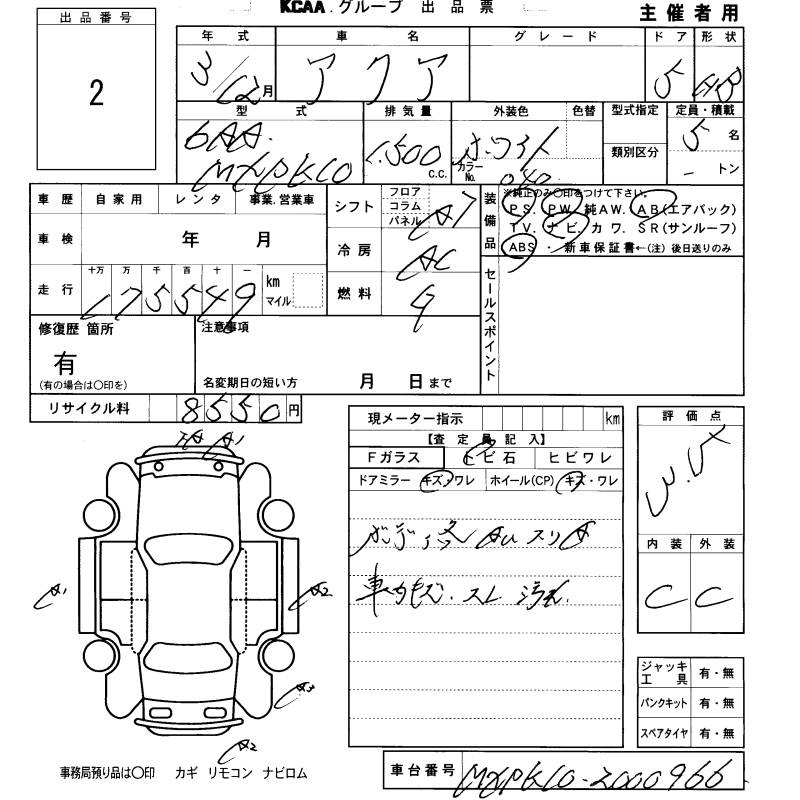 KCAA.グループ 出品票
主催者用
出品番号
2
年式 車名 グレード ドア 形状
3/12月 アクア 5 HB
型式 排気量 外装色 色替 型式指定 定員・積載
6AA- 1,500 c.c. ホワイト 5名
MXPK10 カラーNo. 040 類別区分 - トン
車歴 自家用 レンタ 事業.営業車
シフト フロア コラム パネル AT
装備品 ※純正のみ〇印をつけて下さい。
PS. PW. 純AW. AB(エアバック)
TV. ナビ. カワ. SR(サンルーフ)
ABS ・ 新車保証書←(注) 後日送りのみ
車検 年 月
冷房 AC
走行 十万 万 千 百 十 一 km マイル
175549
燃料 G
セールスポイント
修復歴 箇所
有
(有の場合は〇印を)
注意事項
名変期日の短い方 月 日まで
リサイクル料 8550円
現メーター指示 km
【査定員記入】
Fガラス トビ石 ヒビワレ
ドアミラー キズ・ワレ ホイール(CP) キズ・ワレ
スリキ
車内キズ.スレ 汚れ.
評価点
3.5
内装 外装
C C
A1
A1
A2
A3
A2
ジャッキ工具 有・無
パンクキット 有・無
スペアタイヤ 有・無
事務局預り品は〇印 カギ リモコン ナビロム
車台番号 MXPK10-2000966